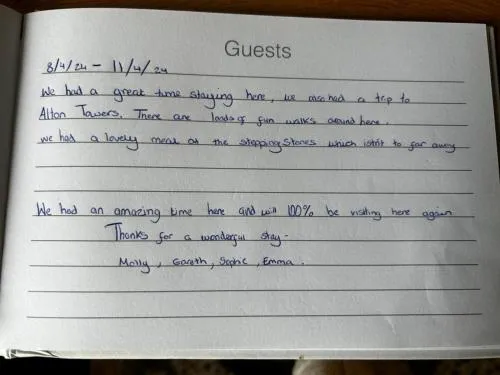 Guests
8/4/24 - 11/4/24
We had a great time staying here, we also had a trip to
Alton Towers. There are loads of fun walks around here.
we had a lovely meal at the stepping Stones which isnt to far away
We had an amazing time here and will 100% be visiting here again
Thanks for a wonderful stay-
Molly, Gareth, Sophie, Emma.